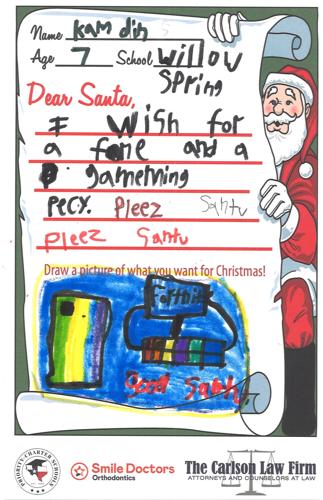 Name kam din
Age 7 School Willow
Spring
Dear Santa,
I Wish for
a fone and a
gamening
PeCY. Pleez Santu
Pleez Santu
Draw a picture of what you want for Christmas!
PRIORITY CHARTER SCHOOLS
Smile Doctors
Orthodontics
The Carlson Law Firm
ATTORNEYS AND COUNSELORS AT LAW